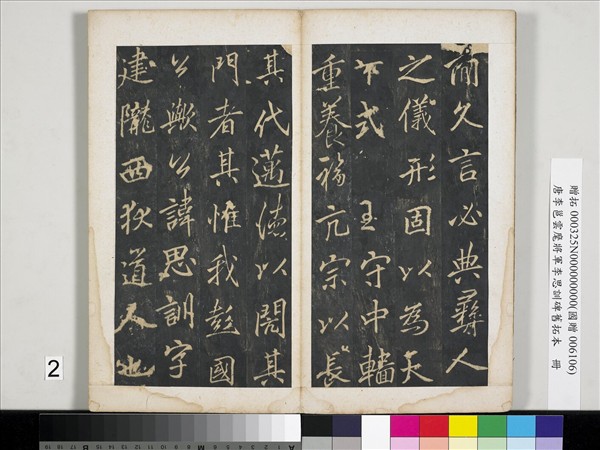 簡久言必典彝人
之儀形固以為天
下式王守中輜
重養福亢宗以長
其代邁德以閎其
門者其惟我彭國
公歟公諱思訓字
建隴西狄道人也
贈拓 000325N000000000(國贈 006106)
唐李邕雲麾將軍李思訓碑舊拓本 冊
2